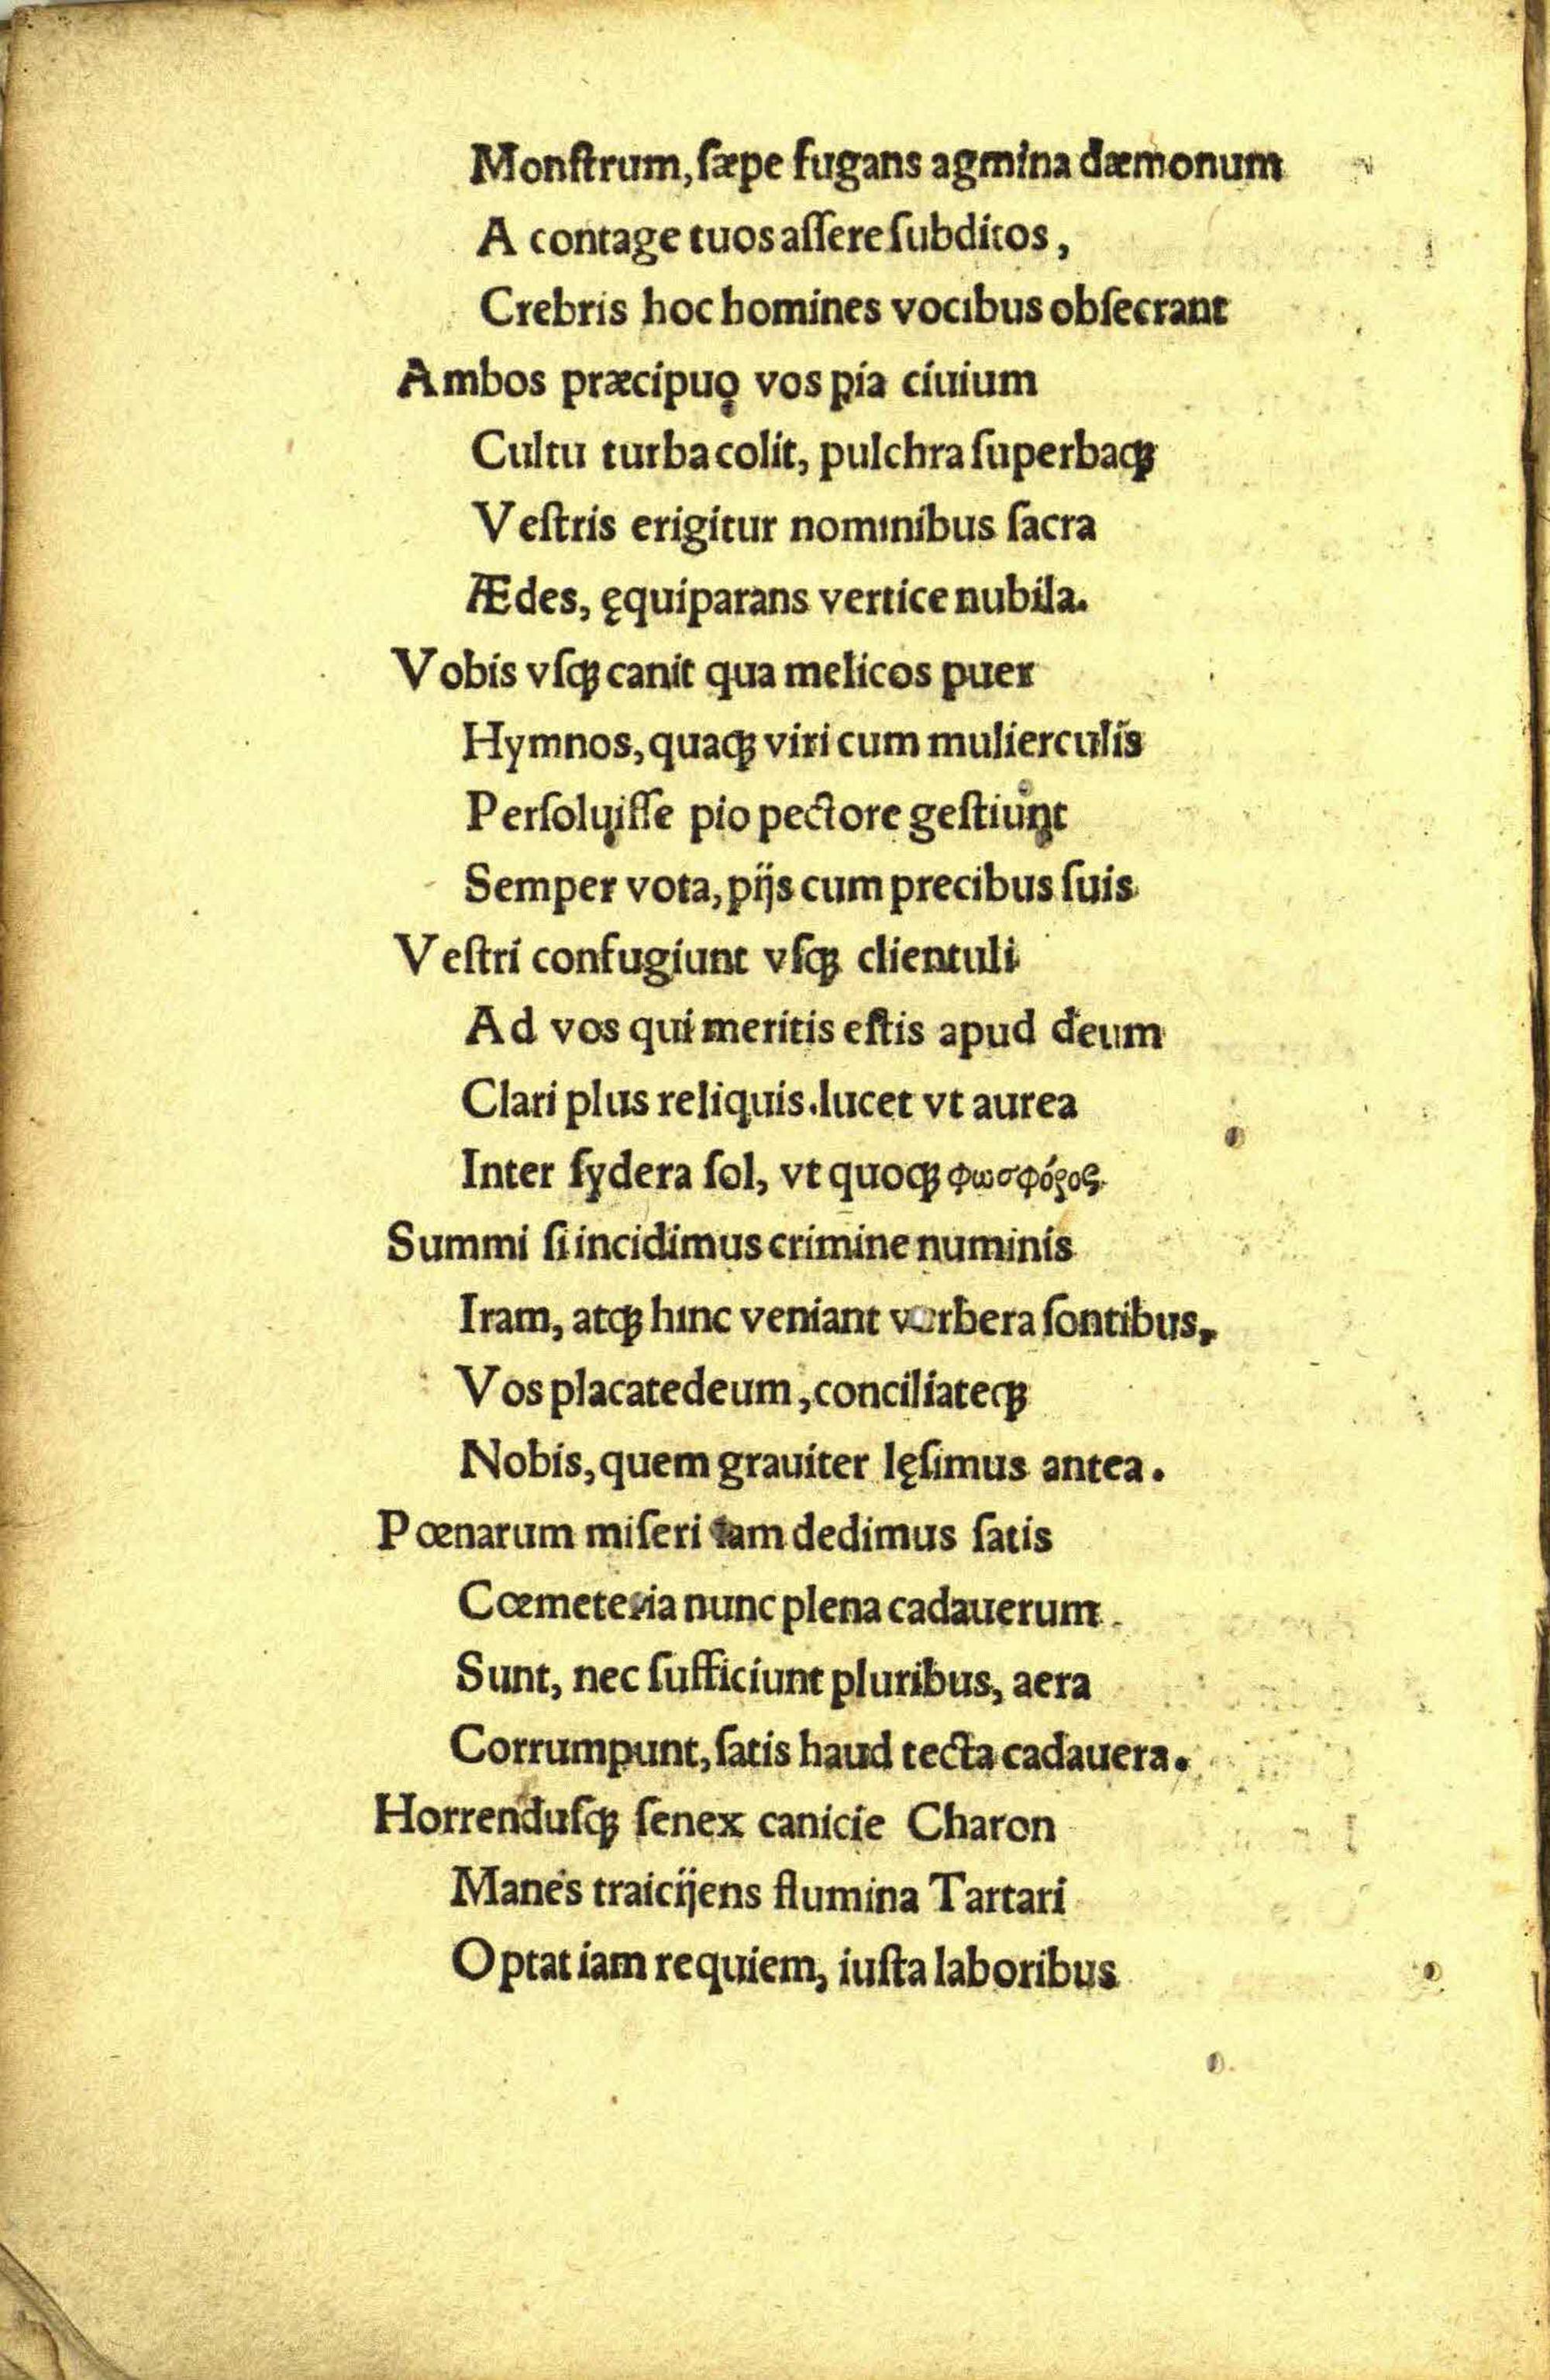 Monſtrum, ſæpe fugans agmina dæmonum
A contage tuos aſſere ſubditos,
Crebris hoc homines vocibus obſecrant
Ambos præcipuo vos pia ciuium
Cultu turba colit, pulchra ſuperbaqꝫ
Veſtris erigitur nominibus ſacra
Ædes, ęquiparans vertice nubila.
Vobis vſqꝫ canit qua melicos puer
Hymnos, quaqꝫ viri cum mulierculis
Perſoluiſſe pio pectore geſtiunt
Semper vota, pijs cum precibus ſuis
Veſtri confugiunt vſqꝫ clientuli
Ad vos qui meritis eſtis apud deum
Clari plus reliquis.lucet vt aurea
Inter ſydera ſol, vt quoqꝫ φωσφόρος.
Summi ſi incidimus crimine numinis
Iram, atqꝫ hinc veniant verbera ſontibus,
Vos placate deum, conciliateqꝫ
Nobis, quem grauiter lęſimus antea.
Pœnarum miſeri iam dedimus ſatis
Cœmeteria nunc plena cadauerum
Sunt, nec ſufficiunt pluribus, aera
Corrumpunt, ſatis haud tecta cadauera.
Horrenduſqꝫ ſenex canicie Charon
Manes traicijens flumina Tartari
Optat iam requiem, iuſta laboribus